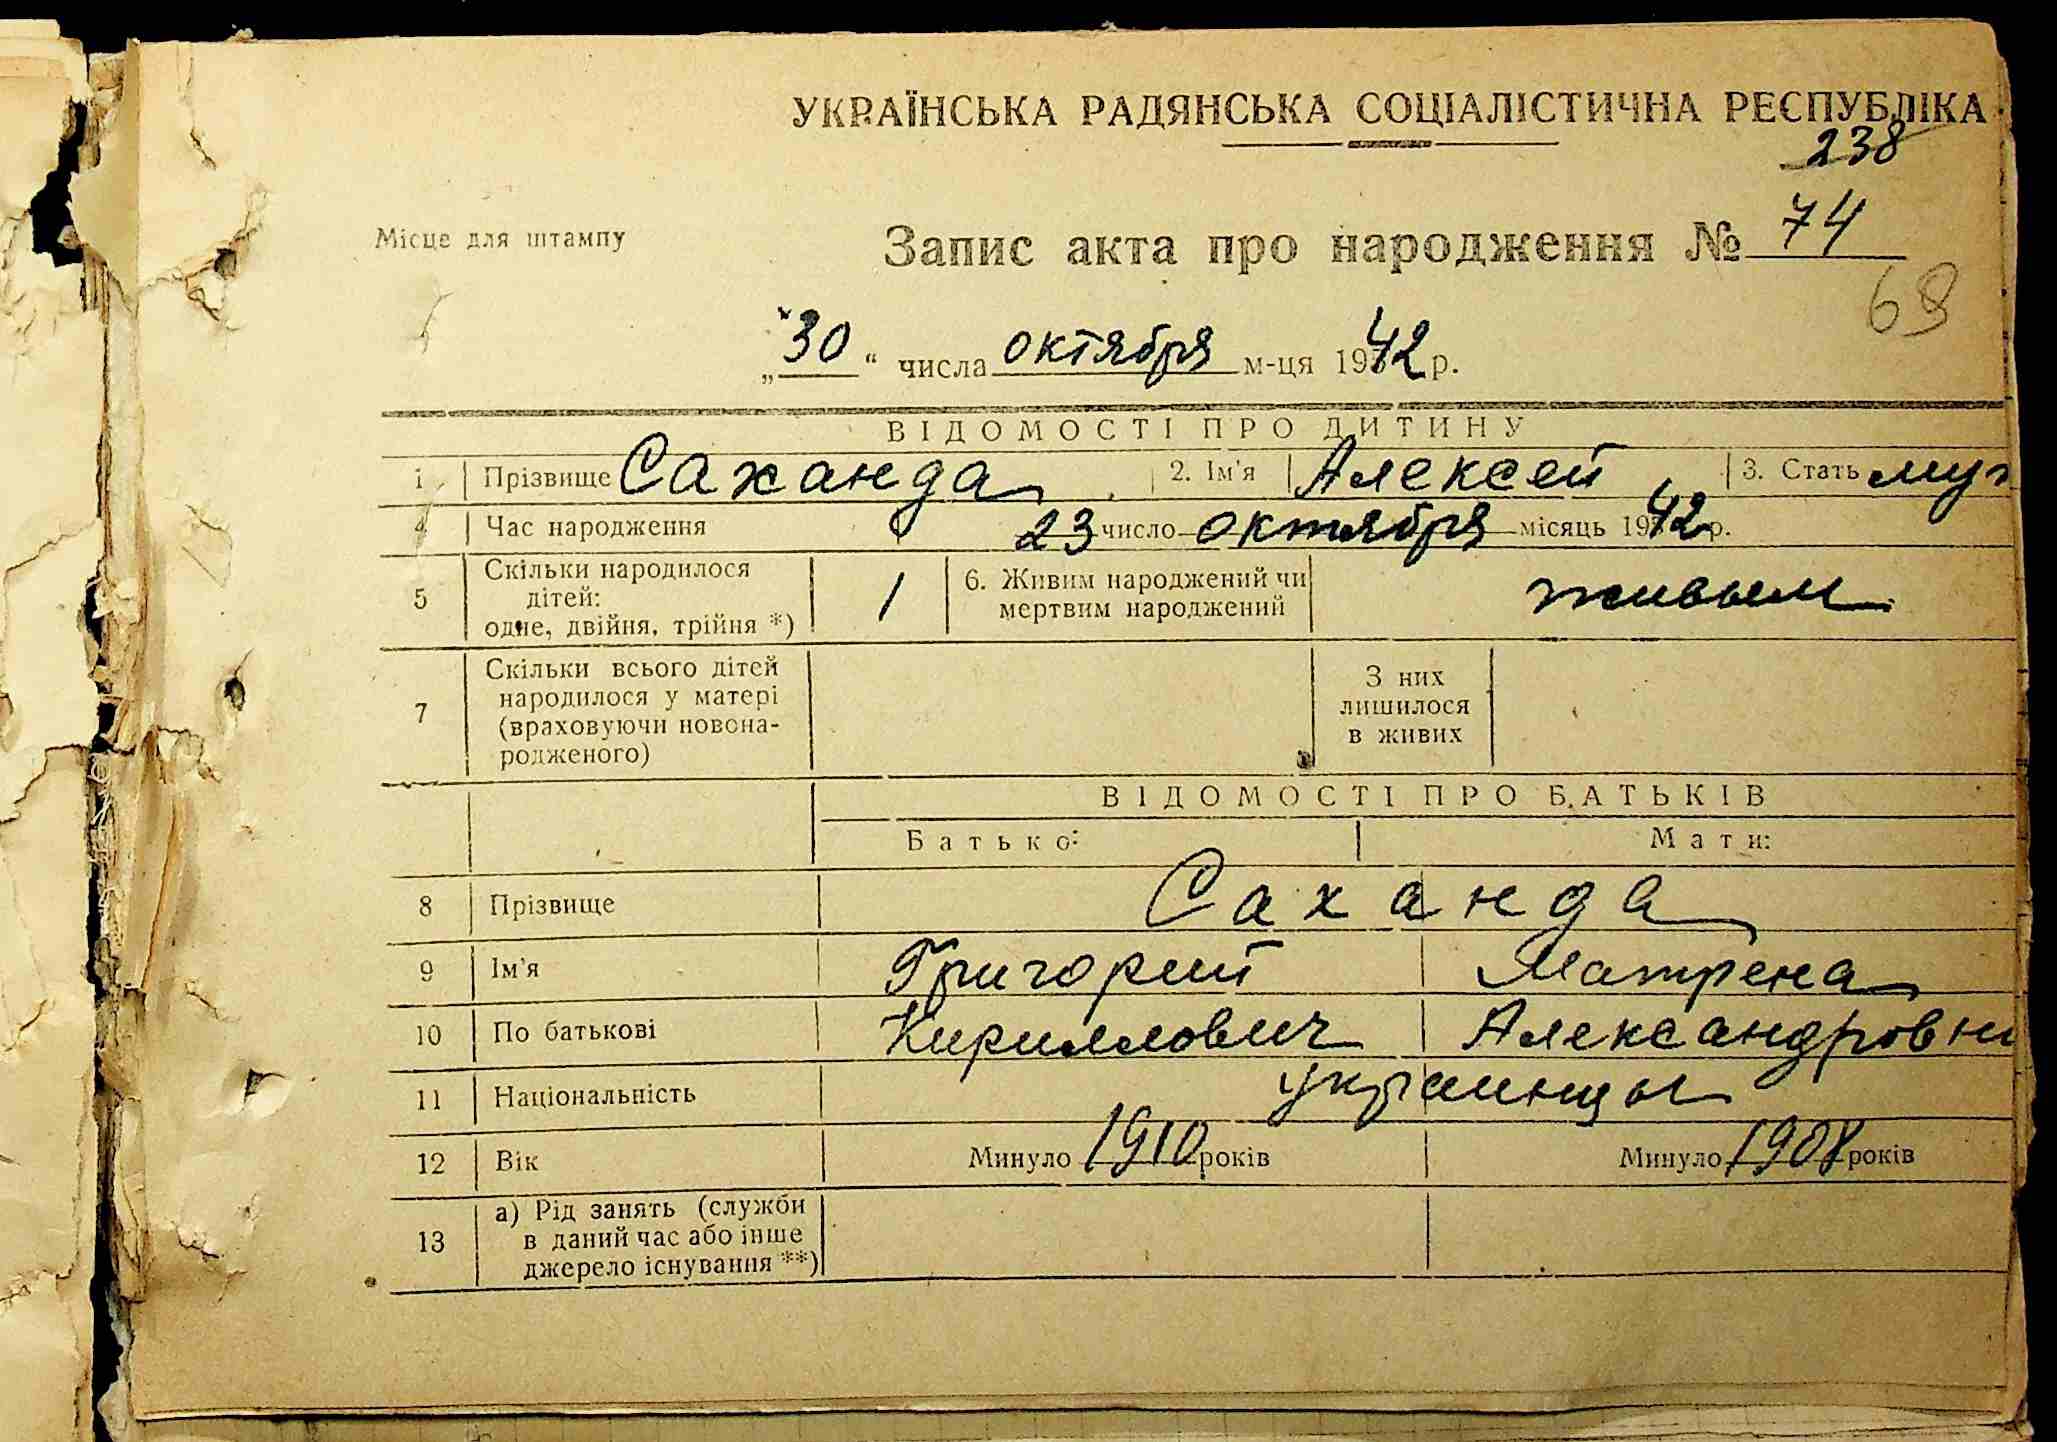 УКРАЇНСЬКА РАДЯНСЬКА СОЦІАЛІСТИЧНА РЕСПУБЛІКА
238
Місце для штампу
Запис акта про народження № 74
68
„30“ числа октября м-ця 1942 р.
ВІДОМОСТІ ПРО ДИТИНУ
1 Прізвище Саханда 2. Ім'я Алексей 3. Стать муж
4 Час народження 23 число октября місяць 1942 р.
5 Скільки народилося дітей: одне, двійня, трійня *) 1 6. Живим народжений чи мертвим народжений живым
7 Скільки всього дітей народилося у матері (враховуючи новона-родженого) З них лишилося в живих
ВІДОМОСТІ ПРО БАТЬКІВ
Батько: Мати:
8 Прізвище Саханда
9 Ім'я Григорий Матрена
10 По батькові Кириллович Александровн
11 Національність украинцы
12 Вік Минуло 1910 років Минуло 1908 років
13 а) Рід занять (служби в даний час або інше джерело існування **)